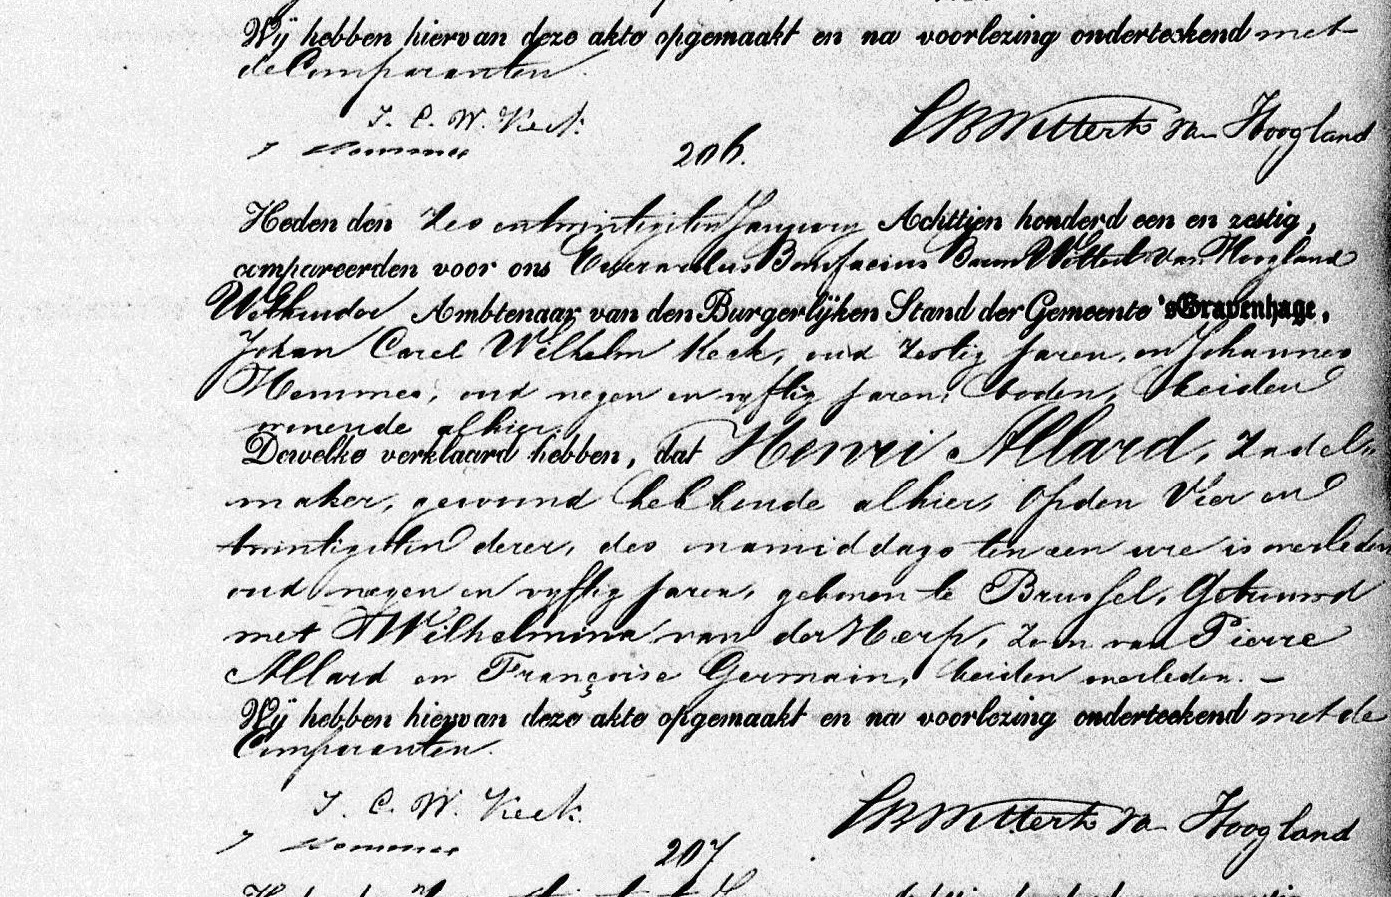 Wij hebben hiervan deze akte opgemaakt en na voorlezing onderteekend met
de Comparanten.
J. C. W. Keck
J Hemmes
Wittert van Hoogland
206.
Heden den Zes entwintigsten Januarij Achttien honderd een en zestig,
compareerden voor ons Everardus Bonifacius Baron Wittert van Hoogland
Wethouder Ambtenaar van den Burgerlijken Stand der Gemeente 'sGravenhage,
Johan Carel Wilhelm Keck, oud Zestig jaren, en Johannes
Hemmes, oud negen en vyftig jaren, boden, beiden
wonende alhier.
Dewelke verklaard hebben, dat Henri Allard, Zadel-
maker, gewoond hebbende alhier, Op den Vier en
twintigsten dezer, des namiddags ten een ure is overleden
oud negen en vyftig jaren, geboren te Brussel, Gehuwd
met Wilhelmina van der Werf, Zoon van Pierre
Allard en Françoise Germain, beiden overleden. –
Wij hebben hiervan deze akte opgemaakt en na voorlezing onderteekend met de
Comparanten.
J. C. W. Keck.
J Hemmes
Wittert van Hoogland
207